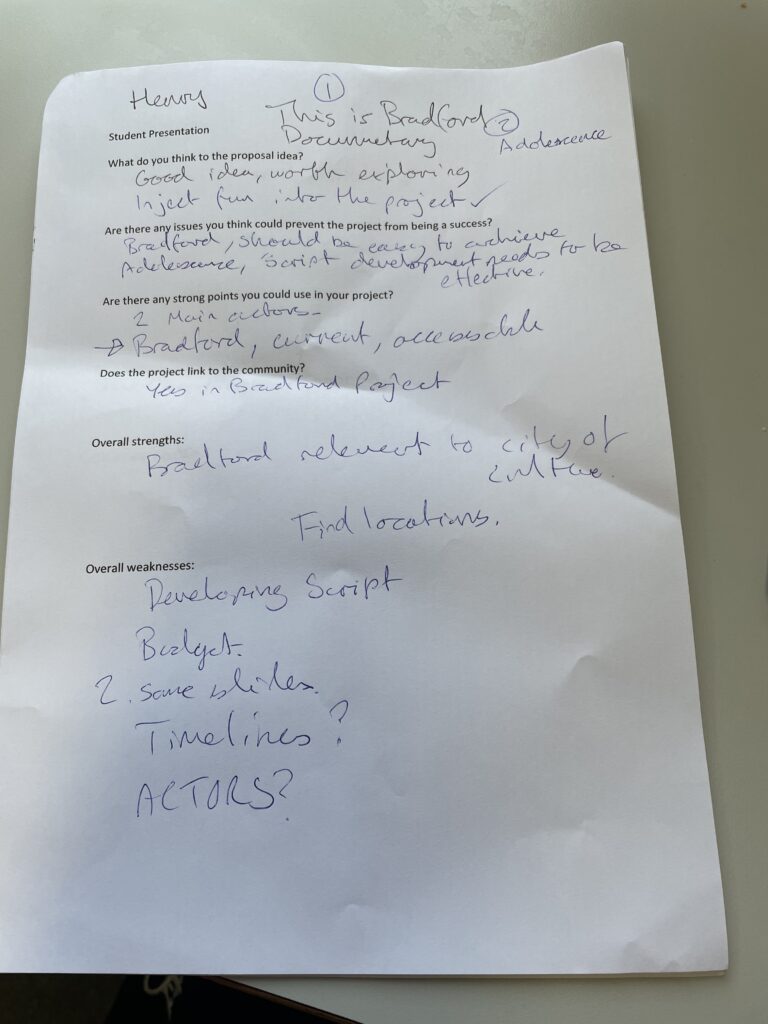 Henry
①
This is Bradford
Documentary
②
Adolescence
Student Presentation
What do you think to the proposal idea?
Good idea, worth exploring
Inject fun into the project ✓
Are there any issues you think could prevent the project from being a success?
Bradford, should be easy to achieve
Adolescence, Script development needs to be
effective.
Are there any strong points you could use in your project?
2 Main actors-
→ Bradford, current, accessable
Does the project link to the community?
Yes in Bradford Project
Overall strengths:
Bradford relevent to city of
culture.
Find locations.
Overall weaknesses:
Developing Script
Budget.
2. Same slides.
Timelines?
ACTORS?